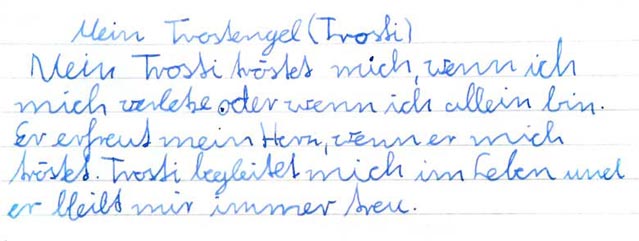 Mein Trostengel (Trosti)
Mein Trosti tröstet mich, wenn ich
mich verletze oder wenn ich allein bin.
Er erfreut mein Herz, wenn er mich
tröstet. Trosti begleitet mich im Leben und
er bleibt mir immer treu.